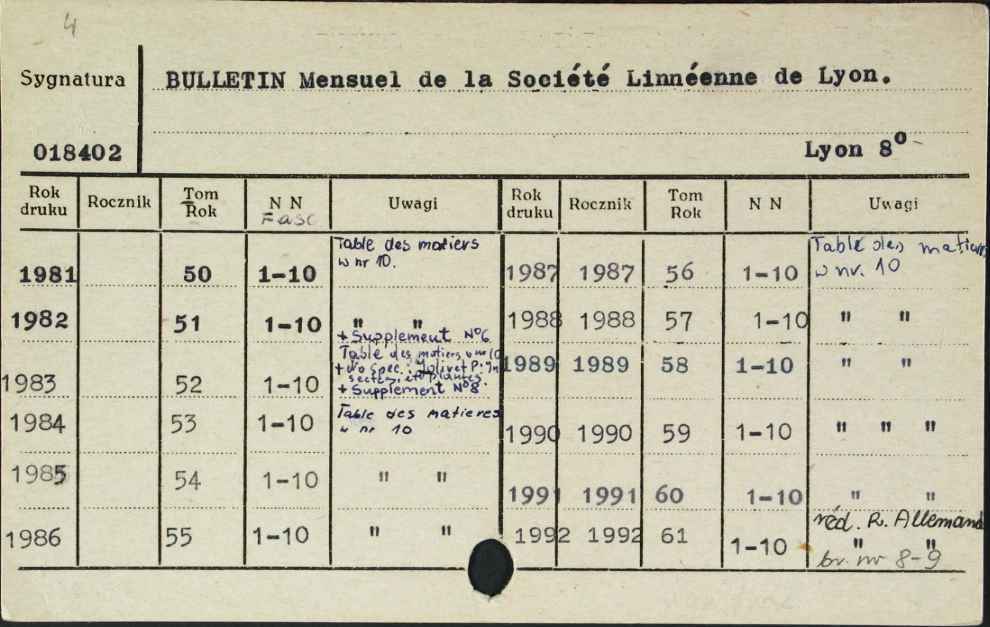 4
Sygnatura
BULLETIN Mensuel de la Société Linnéenne de Lyon.
018402
Lyon 8⁰
Rok druku Rocznik Tom Rok N N Fasc Uwagi Rok druku Rocznik Tom Rok N N Uwagi
1981 50 1-10 Table des matiers w nr 10.
1982 51 1-10 " " + Supplement Nº6
1983 52 1-10 Table des matiers w nr 10 + Nº Spec. Jolivet P. Insectes et plantes. + Supplement Nº8
1984 53 1-10 Table des matieres w nr 10
1985 54 1-10 " "
1986 55 1-10 " "
1987 1987 56 1-10 Table des matiers w nr. 10
1988 1988 57 1-10 " "
1989 1989 58 1-10 " "
1990 1990 59 1-10 " " "
1991 1991 60 1-10 " "
1992 1992 61 1-10 réd. R. Allemand " " br. nr 8-9